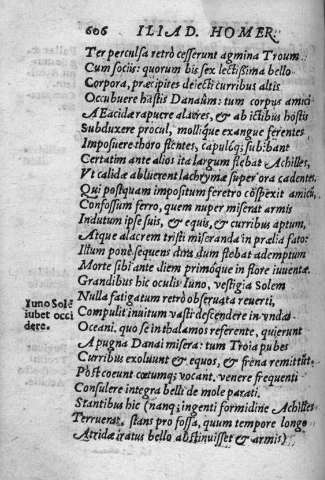 606 ILIAD. HOMER.
Ter perculsa retrò cesserunt agmina Troum
Cum sociis: quorum bis sex lectißima bello
Corpora, præcipites deiecti curribus altis
Occubuere hastis Danaûm: tum corpus amici
AEacidæ rapuere alacres, & ab ictibus hostis
Subduxere procul, mollique exangue ferentes
Imposuere thoro flentes, capulóq; subibant
Certatim ante alios ita largum flebat Achilles,
Vt calidæ abluerent lachrymæ super ora cadentes,
Qui postquam impositum feretro cõspexit amicũ,
Confossum ferro, quem nuper miserat armis
Indutum ipse suis, & equis, & curribus aptum,
Atque alacrem tristi miseranda in prælia fato:
Illum ponè sequens dira dum flebat ademptum
Morte sibi ante diem primóque in flore iuuentæ.
Grandibus hic oculis Iuno, vestigia Solem
Iuno Solē iubet occidere.
Nulla fatigatum retrò obseruata reuerti,
Compulit inuitum vasti descendere in vndas
Oceani, quo se in thalamos referente, quierunt
A pugna Danai misera: tum Troia pubes
Curribus exoluunt & equos, & frena remittũt,
Post coeunt cœtumq; vocant, venere frequenti
Consulere integra belli de mole parati.
Stantibus hic (nanq; ingenti formidine Achilles
Terruerat, stans pro fossa, quum tempore longo
Atridæ iratus bello abstinuisset & armis)